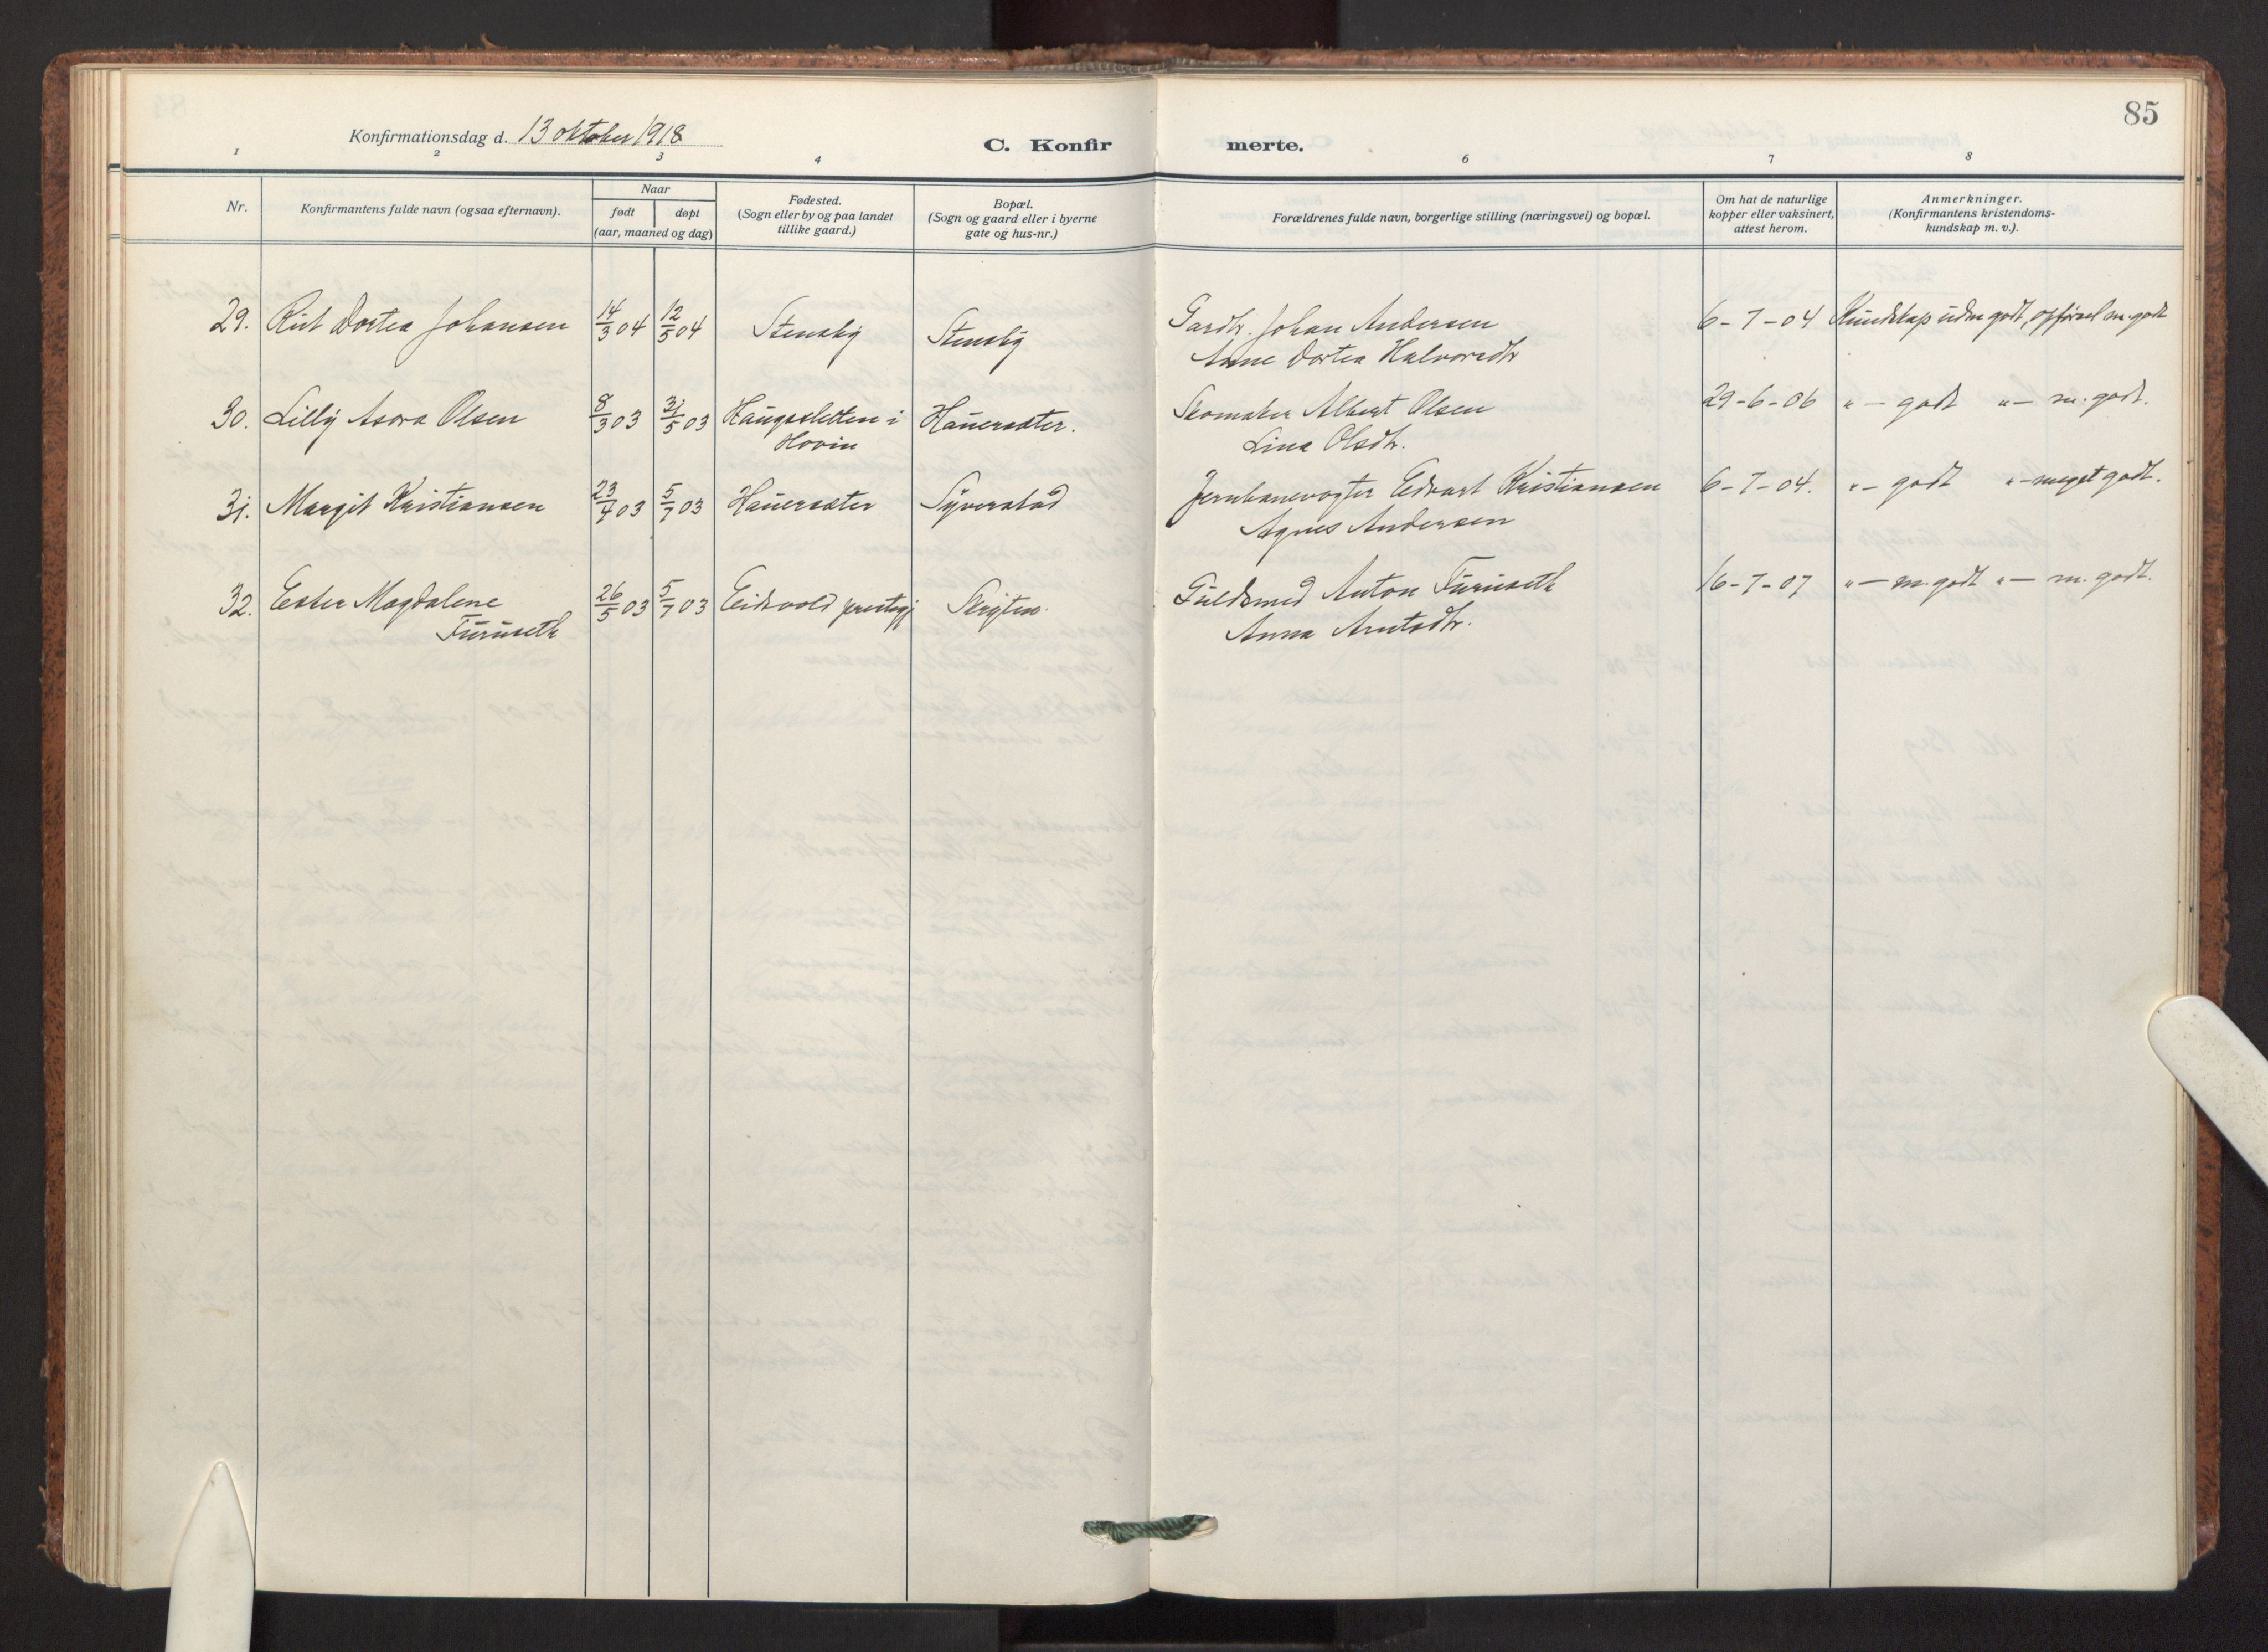 85
Konfirmationsdag d. 13 oktober 1918
C. Konfirmerte.
1 2 3 4 6 7 8
Nr.
Konfirmantens fulde navn (ogsaa efternavn).
Naar
født døpt
(aar, maaned og dag)
Fødested.
(Sogn eller by og paa landet
tillike gaard.)
Bopæl.
(Sogn og gaard eller i byerne
gate og hus-nr.)
Forældrenes fulde navn, borgerlige stilling (næringsvei) og bopæl.
Om hat de naturlige
kopper eller vaksinert,
attest herom.
Anmerkninger.
(Konfirmantens kristendoms-
kundskap m. v.).
29. Rut Dortea Johansen 14/3 04 12/5 04 Stensby Stensby Gardbr. Johan Andersen 6-7-04 Kundskap udm godt, opførsel m. godt
Anne Dortea Halvorsdtr
30. Lilly Asora Olsen 8/3 03 31/5 03 Haugsletten i Hauersæter. Skomaker Albert Olsen 29-6-06 "— godt "— m. godt.
Hovin Lina Olsdtr.
31. Margit Kristiansen 23/4 03 5/7 03 Hauersæter Syverstad Jernbanevogter Edvart Kristiansen 6-7-04. "— godt "— meget godt.
Agnes Andersen
32. Ester Magdalene 26/5 03 5/7 03 Eidsvold prestegj Guldsmed Anton Furuseth 16-7-07 "— m. godt "— m. godt.
Furuseth Anna Arntsdtr.